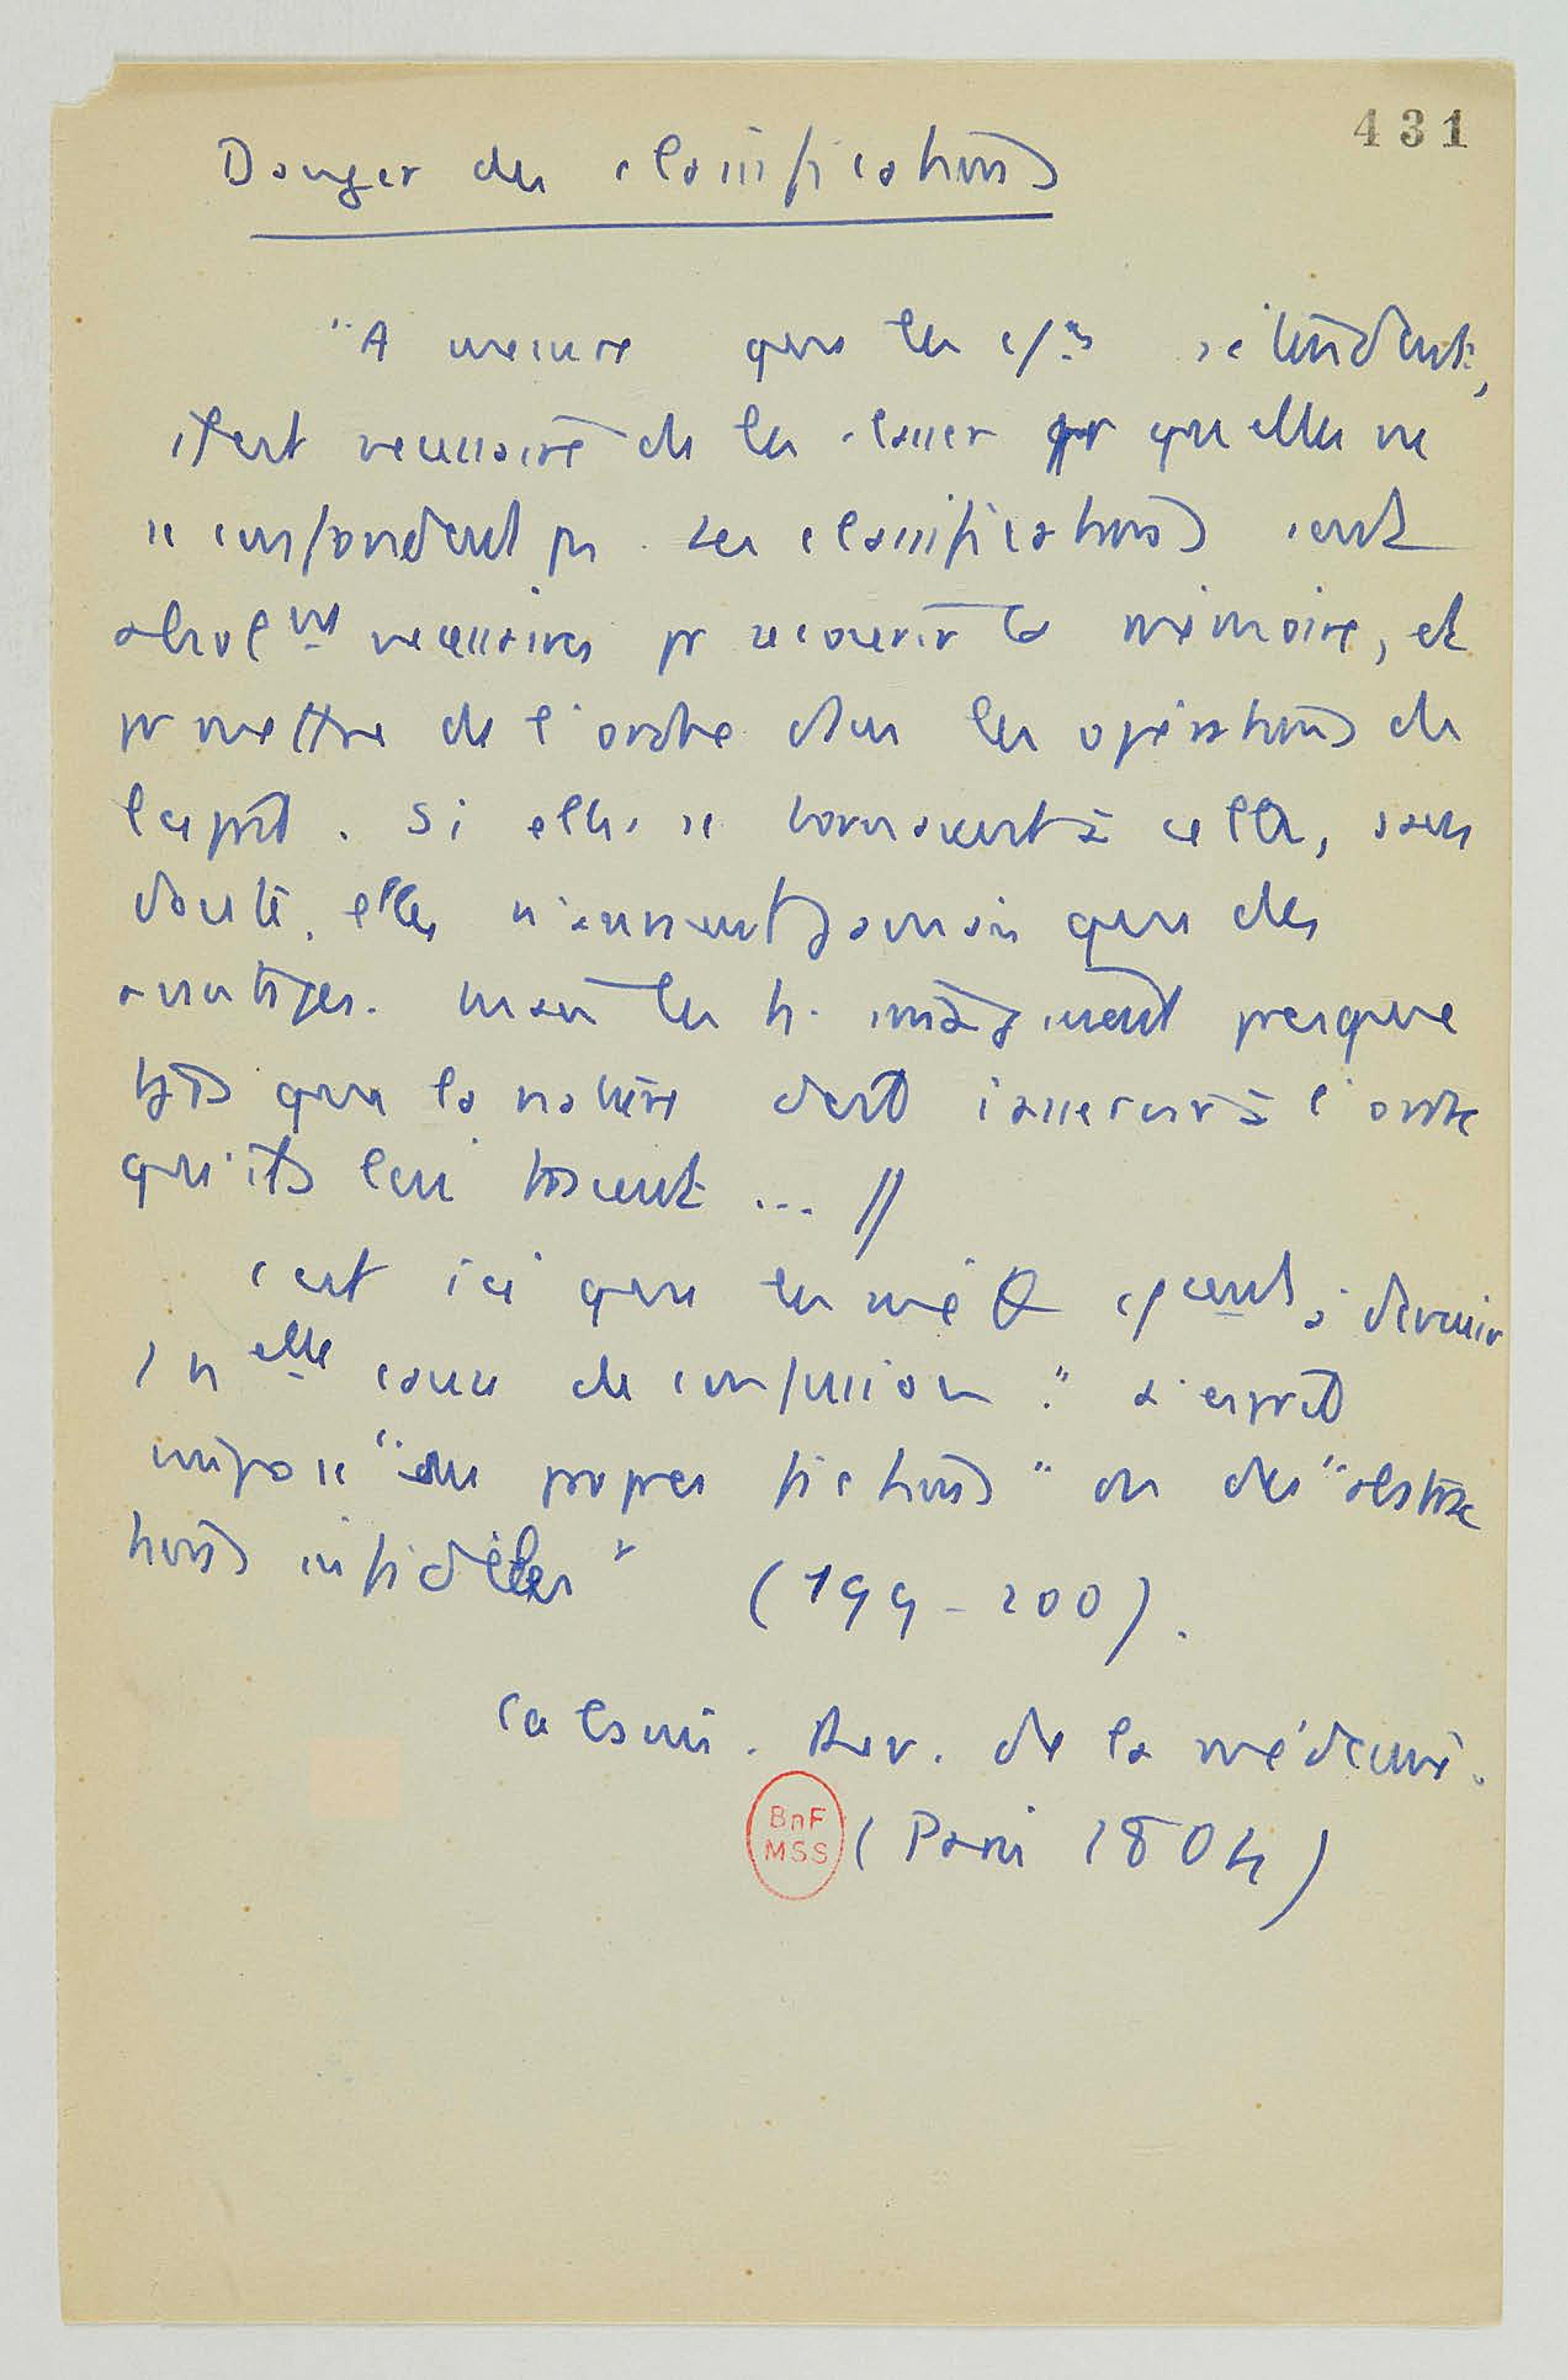 431
Danger des classifications
"A mesure que les c/ces s'étendent,
il est necessaire de les classer pr qu'elles ne
se confondent pas. Les classifications sont
absolmt necessaires pr secourir la mémoire, et
pr mettre de l'ordre dans les opérations de
l'esprit. Si elles se bornaient à cela, sans
doute, elles n'auraient jamais que des
avantages. Mais les h. imaginent presque
tjrs que la nature doit s'asservir à l'ordre
qu'ils lui tracent ... //
C'est ici que les méth commencent à devenir
1 nelle cause de confusion." L'esprit
impose "ses propres fictions" ou des "abstrac
tions infidèles" (199-200).
Cabanis. Rev. de la médecine.
(Paris 1804)
BnF
MSS